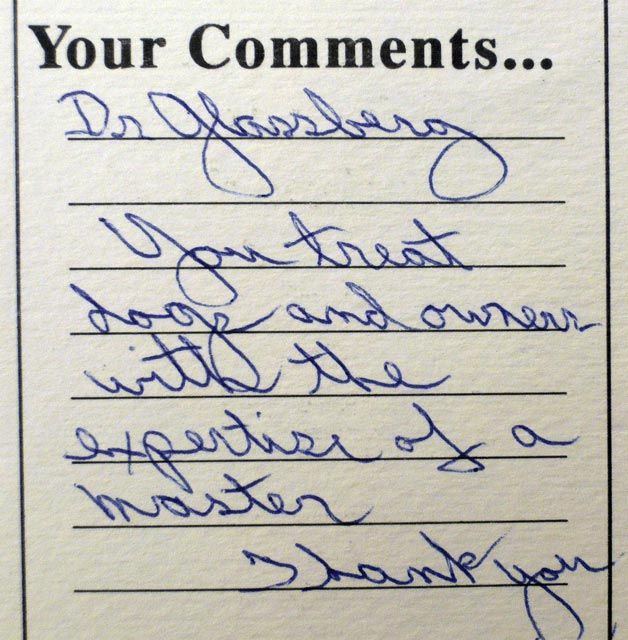 Your Comments...
Dr Glassberg
You treat
dogs and owners
with the
expertise of a
master
Thank you